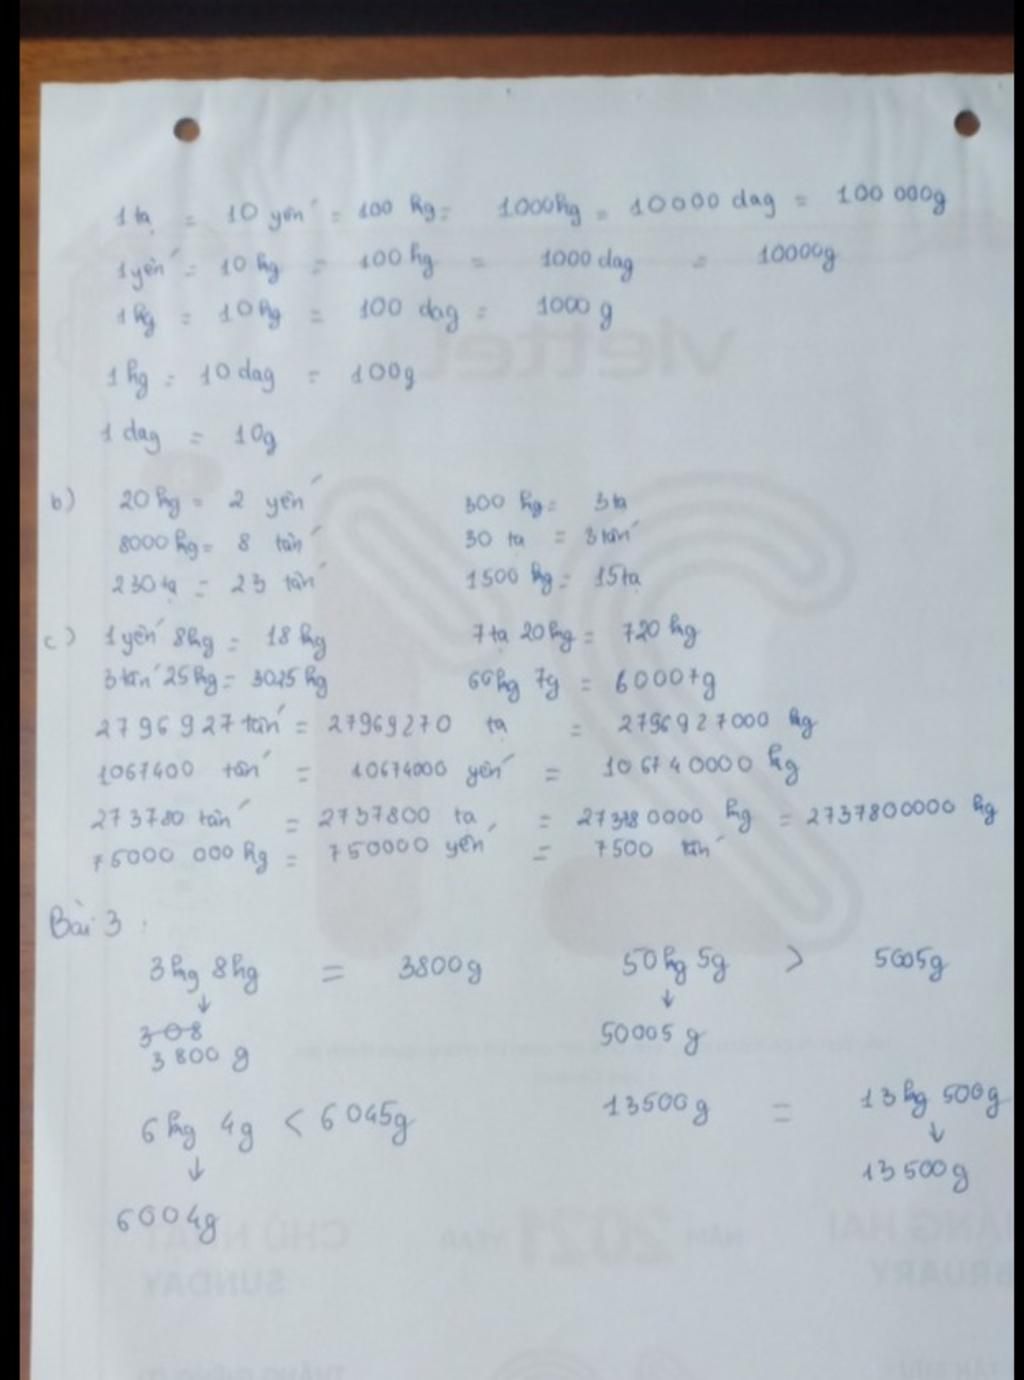 1 tạ = 10 yến = 100 kg = 1000hg = 10000 dag = 100 000g
1 yến = 10 kg = 100 hg = 1000 dag = 10000g
1 kg = 10 hg = 100 dag = 1000 g
1 hg = 10 dag = 100g
1 dag = 10g
b) 20 kg = 2 yến 300 kg = 3 tạ
8000 kg = 8 tấn 30 tạ = 3 tấn
230 tạ = 23 tấn 1500 kg = 15 tạ
c) 1 yến 8kg = 18 kg 7 tạ 20 kg = 720 kg
3 tấn 25 kg = 3025 kg 60kg 7g = 60007g
2796 927 tấn = 27969270 tạ = 2796927000 kg
1067400 tấn = 10674000 yến = 106740000 kg
273780 tấn = 2737800 tạ = 273780000 kg = 2737800000 hg
75000 000 kg = 750000 yến = 7500 tấn
Bài 3 :
3 kg 8hg = 3800g 50 kg 5g > 5005g
308 50005 g
3 800 g
6 kg 4g < 6045g 13500g = 13 kg 500g
13 500g
6004g
viettel
CHỦ NHẬT NĂM 2021 YEAR
SUNDAY